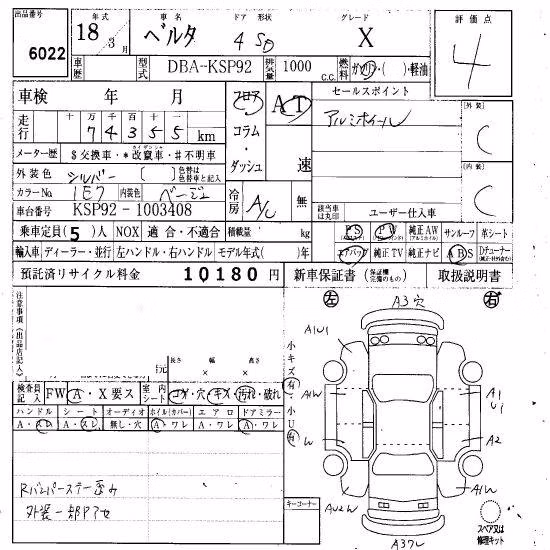 出品番号 6022
年式 18 3月
車名 ベルタ
ドア 形状 4 SD
グレード X
評価点 4
車歴
型式 DBA-KSP92
排気量 1000 C.C.
燃料 ガソリン・( )・軽油
車検 年 月
フロア・コラム・ダッシュ
AT 速
セールスポイント
アルミホイール
[外装] C
[内装] C
走行 十万千百十一
74355 km
メーター歴 $交換車・*改竄車・#不明車
外装色 シルバー [ ] 色替は色替車と記入
カラーNo. 1E7 内装色 ベージュ
冷房 A/C 無
該当車は丸印
ユーザー仕入車
車台番号 KSP92-1003408
乗車定員(5)人 NOX 適合・不適合 積載量 kg
PS PW 純正AW (アルミホイル) サンルーフ 革シート
輸入車 ディーラー・並行 左ハンドル・右ハンドル モデル年式( )年
エアバッグ 純正TV 純正ナビ ABS Dチューナー
預託済リサイクル料金 10180円
新車保証書 (保証欄完備のもの) 取扱説明書
注意事項(出品店記入)
長さ 幅 高さ
× ×
左 右
A3 穴
A1U1
小キズ有・小U有
A1W
A1
U1
W
A2
検査員記入 FW A・X要ス 室内シート コゲ・穴 キズ・汚れ・破れ
ハンドル シート オーディオ ホイル(カバー) エアロ ドアミラー
A・スレ A・スレ 無し・穴 A・ワレ A・ワレ A・ワレ
Rバンパーステー歪み
外装一部Pアセ
キーコーナー
AU2W
A1W
スペア又は修理キット